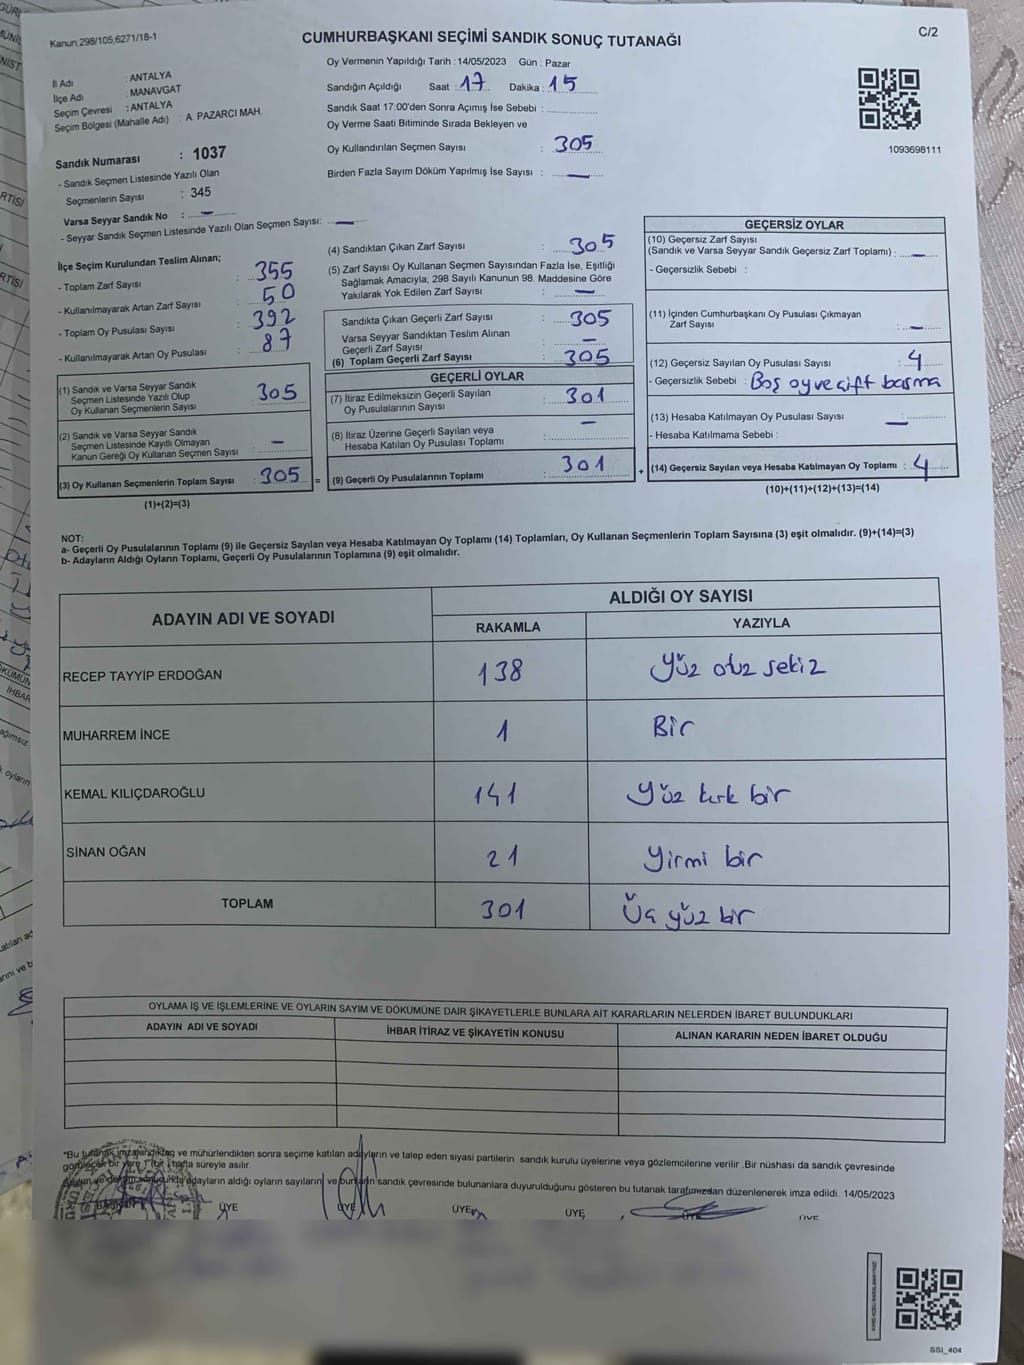 Kanun;298/105,6271/18-1
CUMHURBAŞKANI SEÇİMİ SANDIK SONUÇ TUTANAĞI
C/2
İl Adı : ANTALYA
İlçe Adı : MANAVGAT
Seçim Çevresi : ANTALYA
Seçim Bölgesi (Mahalle Adı) : A. PAZARCI MAH.
Sandık Numarası : 1037
- Sandık Seçmen Listesinde Yazılı Olan
Seçmenlerin Sayısı : 345
Varsa Seyyar Sandık No : —
- Seyyar Sandık Seçmen Listesinde Yazılı Olan Seçmen Sayısı: —
Oy Vermenin Yapıldığı Tarih :14/05/2023 Gün : Pazar
Sandığın Açıldığı Saat : 17 Dakika : 15
Sandık Saat 17:00'den Sonra Açımış İse Sebebi :
Oy Verme Saati Bitiminde Sırada Bekleyen ve
Oy Kullandırılan Seçmen Sayısı : 305
Birden Fazla Sayım Döküm Yapılmış İse Sayısı : —
1093698111
İlçe Seçim Kurulundan Teslim Alınan;
- Toplam Zarf Sayısı : 355
- Kullanılmayarak Artan Zarf Sayısı : 50
- Toplam Oy Pusulası Sayısı : 392
- Kullanılmayarak Artan Oy Pusulası : 87
(1) Sandık ve Varsa Seyyar Sandık
Seçmen Listesinde Yazılı Olup
Oy Kullanan Seçmenlerin Sayısı : 305
(2) Sandık ve Varsa Seyyar Sandık
Seçmen Listesinde Kayıtlı Olmayan
Kanun Gereği Oy Kullanan Seçmen Sayısı : —
(3) Oy Kullanan Seçmenlerin Toplam Sayısı : 305 =
(1)+(2)=(3)
(4) Sandıktan Çıkan Zarf Sayısı : 305
(5) Zarf Sayısı Oy Kullanan Seçmen Sayısından Fazla İse, Eşitliği
Sağlamak Amacıyla; 298 Sayılı Kanunun 98. Maddesine Göre
Yakılarak Yok Edilen Zarf Sayısı : —
Sandıkta Çıkan Geçerli Zarf Sayısı : 305
Varsa Seyyar Sandıktan Teslim Alınan
Geçerli Zarf Sayısı : —
(6) Toplam Geçerli Zarf Sayısı : 305
GEÇERLİ OYLAR
(7) İtiraz Edilmeksizin Geçerli Sayılan
Oy Pusulalarının Sayısı : 301
(8) İtiraz Üzerine Geçerli Sayılan veya
Hesaba Katılan Oy Pusulası Toplamı : —
(9) Geçerli Oy Pusulalarının Toplamı : 301 +
GEÇERSİZ OYLAR
(10) Geçersiz Zarf Sayısı
(Sandık ve Varsa Seyyar Sandık Geçersiz Zarf Toplamı) : —
- Geçersizlik Sebebi :
(11) İçinden Cumhurbaşkanı Oy Pusulası Çıkmayan
Zarf Sayısı : —
(12) Geçersiz Sayılan Oy Pusulası Sayısı : 4
- Geçersizlik Sebebi : Boş oy ve çift basma
(13) Hesaba Katılmayan Oy Pusulası Sayısı : —
- Hesaba Katılmama Sebebi :
(14) Geçersiz Sayılan veya Hesaba Katılmayan Oy Toplamı : 4
(10)+(11)+(12)+(13)=(14)
NOT:
a- Geçerli Oy Pusulalarının Toplamı (9) ile Geçersiz Sayılan veya Hesaba Katılmayan Oy Toplamı (14) Toplamları, Oy Kullanan Seçmenlerin Toplam Sayısına (3) eşit olmalıdır. (9)+(14)=(3)
b- Adayların Aldığı Oyların Toplamı, Geçerli Oy Pusulalarının Toplamına (9) eşit olmalıdır.
ADAYIN ADI VE SOYADI
ALDIĞI OY SAYISI
RAKAMLA YAZIYLA
RECEP TAYYİP ERDOĞAN 138 Yüz otuz sekiz
MUHARREM İNCE 1 Bir
KEMAL KILIÇDAROĞLU 141 Yüz kırk bir
SİNAN OĞAN 21 Yirmi bir
TOPLAM 301 Üç yüz bir
OYLAMA İŞ VE İŞLEMLERİNE VE OYLARIN SAYIM VE DÖKÜMÜNE DAİR ŞİKAYETLERLE BUNLARA AİT KARARLARIN NELERDEN İBARET BULUNDUKLARI
ADAYIN ADI VE SOYADI İHBAR İTİRAZ VE ŞİKAYETİN KONUSU ALINAN KARARIN NEDEN İBARET OLDUĞU
*Bu tutanak imzalandıktan ve mühürlendikten sonra seçime katılan adayların ve talep eden siyasi partilerin sandık kurulu üyelerine veya gözlemcilerine verilir .Bir nüshası da sandık çevresinde
görülecek bir yere 1 (bir ) hafta süreyle asılır.
adayların aldığı oyların sayılarını ve bunların sandık çevresinde bulunanlara duyurulduğunu gösteren bu tutanak tarafımızdan düzenlenerek imza edildi. 14/05/2023
BAŞKAN ÜYE ÜYE ÜYE ÜYE ÜYE ÜYE
SSI_404